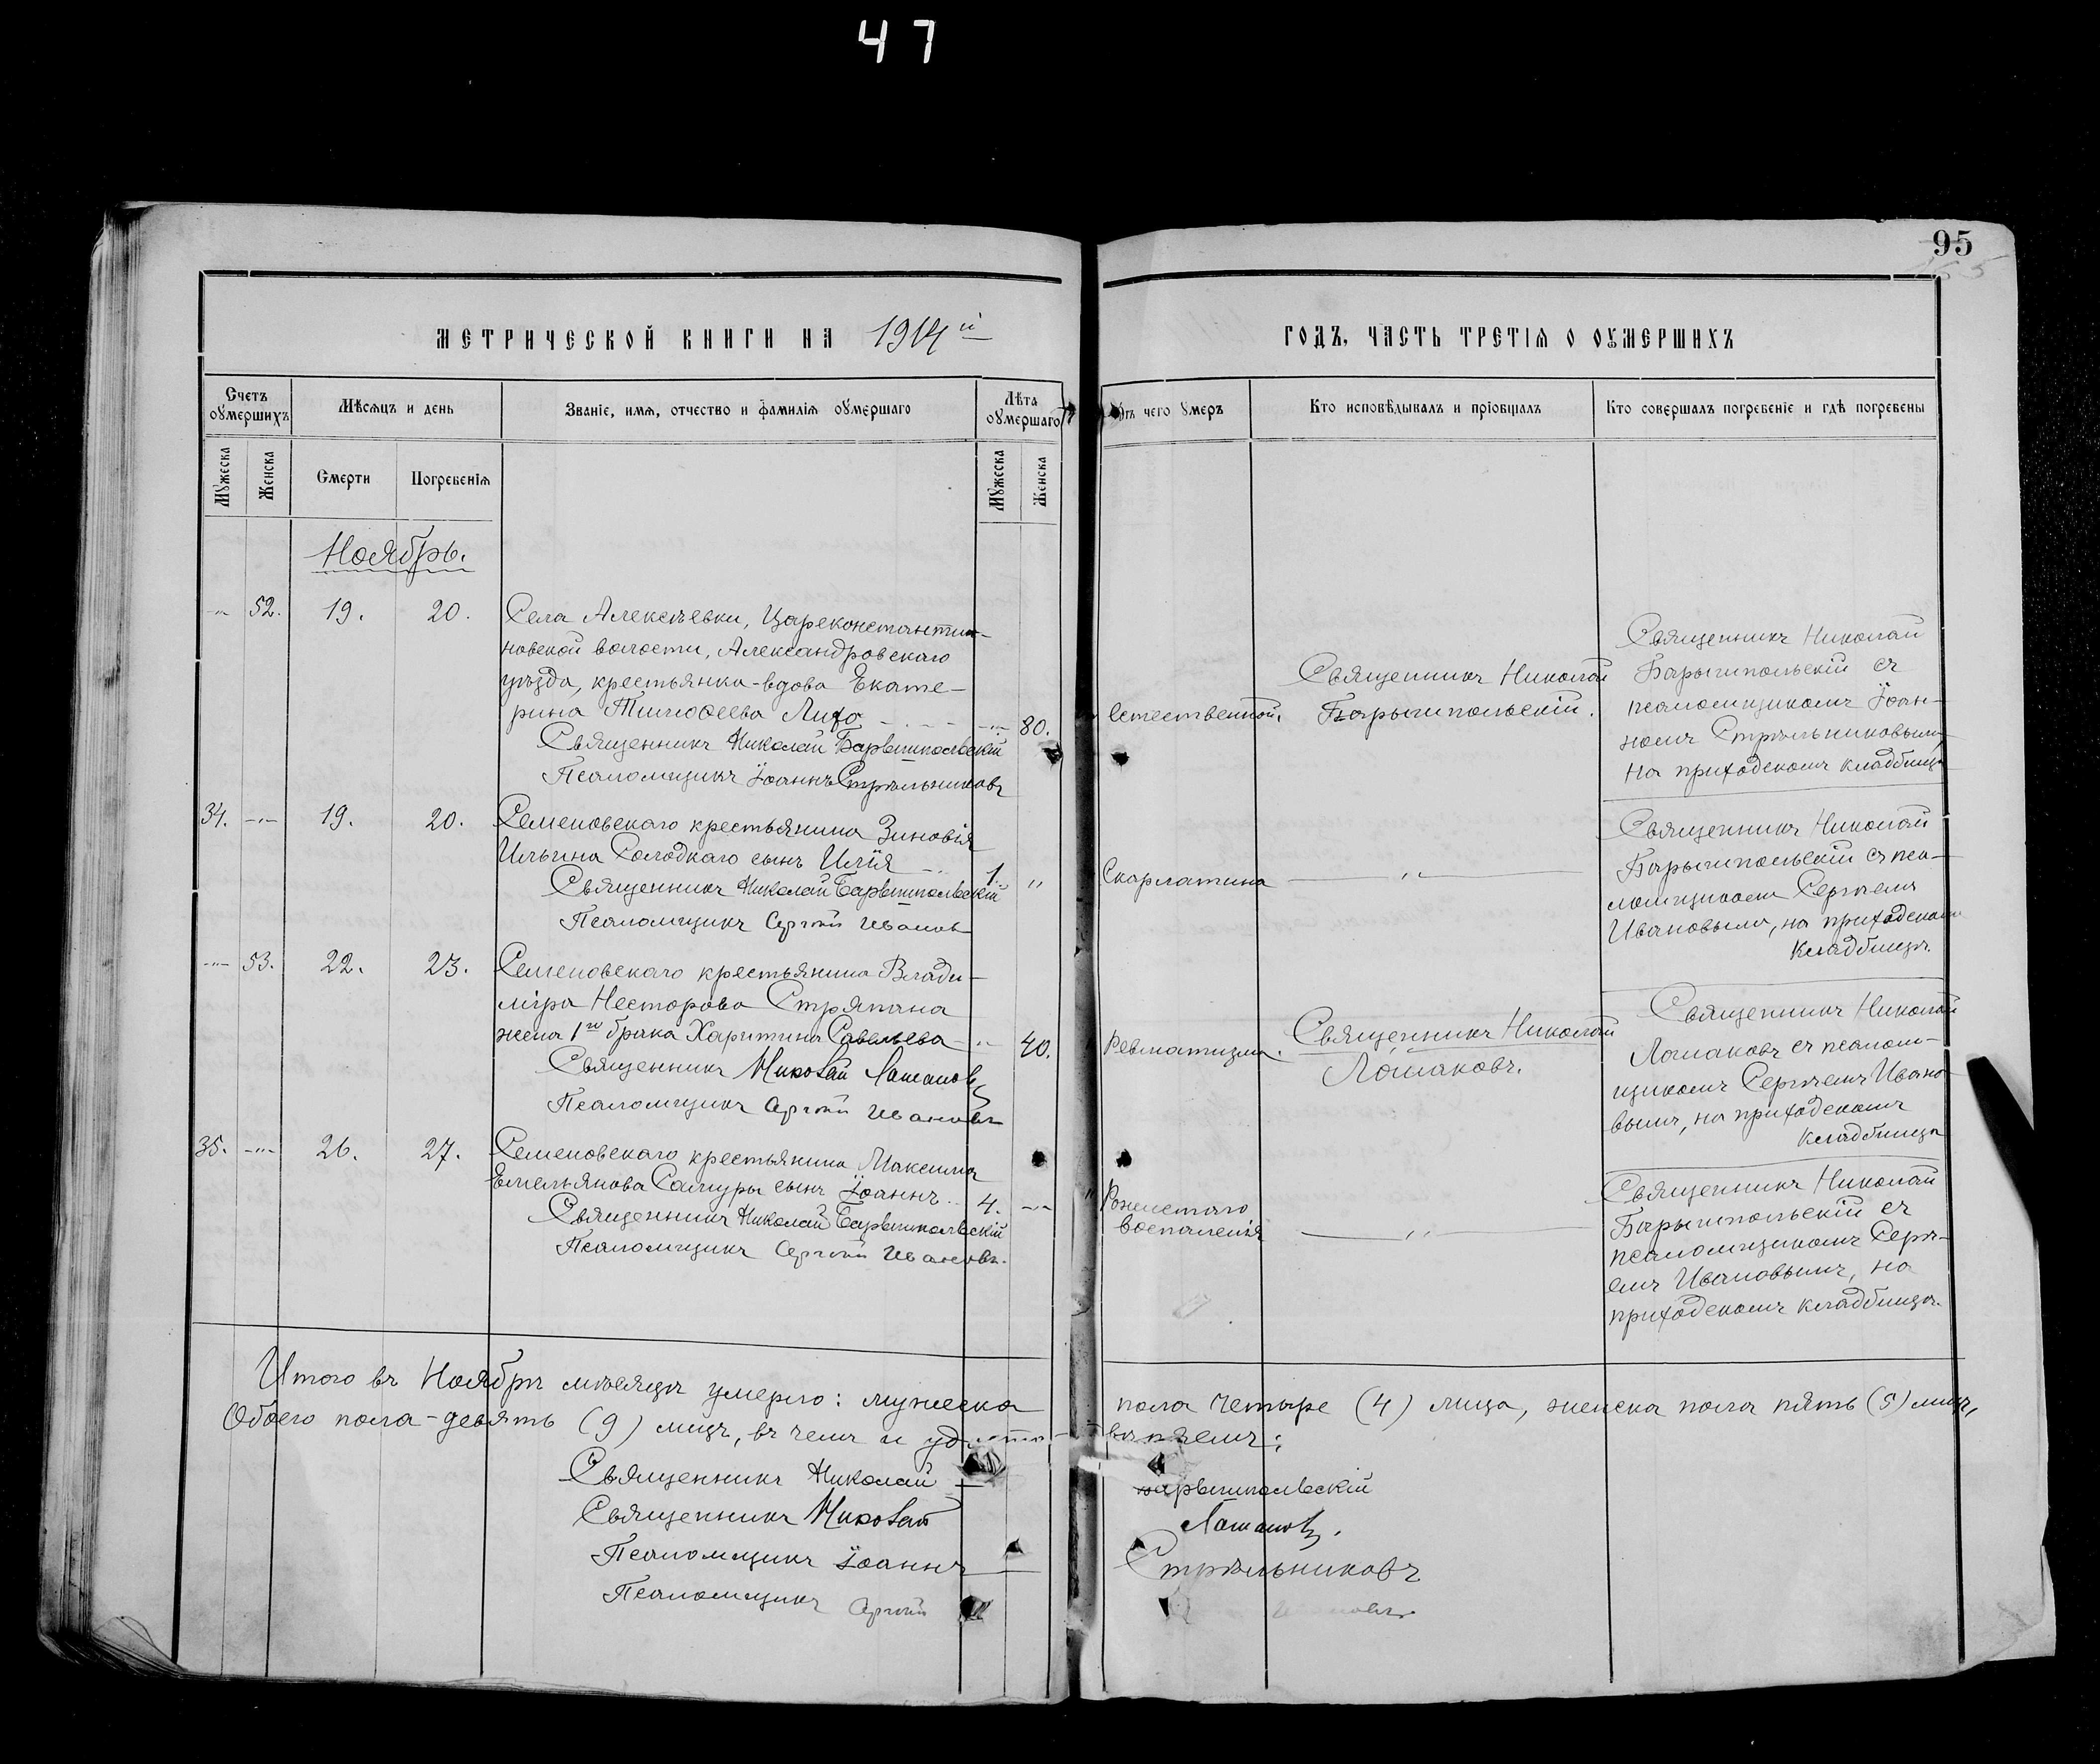 47
95
МЕТРИЧЕСКОЙ КНИГИ НА 1914й
ГОДЪ, ЧАСТЬ ТРЕТІЯ О ОУМЕРШИХЪ
Счетъ оумершихъ
Мѣсяцъ и день
Званіе, имя, отчество и фамилія оумершаго
Лѣта оумершаго
Отъ чего умеръ
Кто исповѣдывалъ и пріобщалъ
Кто совершалъ погребеніе и гдѣ погребены
Мужеска
Женска
Смерти
Погребенія
Мужеска
Женска
Ноябрь.
52. 19. 20.
Села Алексѣевки, Цареконстанти-
новской волости, Александровскаго
уѣзда, крестьянка-вдова Екате-
рина Тимоѳеева Лихо 80.
Священникъ Николай Барышпольскій
Псаломщикъ Іоаннъ Стрѣльниковъ
Естественной.
Священникъ Николай
Барышпольскій.
Священникъ Николай
Барышпольскій съ
псаломщикомъ Іоан-
номъ Стрѣльниковымъ
на приходскомъ кладбищѣ
34. 19. 20.
Семеновскаго крестьянина Зиновія
Ильина Солодкаго сынъ Илія 1. "
Священникъ Николай Барышпольскій
Псаломщикъ Сергѣй Ивановъ
Скарлатина
"
Священникъ Николай
Барышпольскій съ пса-
ломщикомъ Сергѣемъ
Ивановымъ, на приходскомъ
кладбищѣ.
53. 22. 23.
Семеновскаго крестьянина Влади-
міра Несторова Стряпана
жена 1го брака Харитина Савельева 40.
Священникъ Николай Ломаковъ
Псаломщикъ Сергѣй Ивановъ
Ревматизма.
Священникъ Николай
Ломаковъ.
Священникъ Николай
Ломаковъ съ псалом-
щикомъ Сергѣемъ Ивано-
вымъ, на приходскомъ
кладбищѣ
35. 26. 27.
Семеновскаго крестьянина Максима
Емельянова Самуры сынъ Іоаннъ 4.
Священникъ Николай Барышпольскій
Псаломщикъ Сергѣй Ивановъ.
Рожистаго
воспаленія
"
Священникъ Николай
Барышпольскій съ
псаломщикомъ Сергѣ-
емъ Ивановымъ, на
приходскомъ кладбищѣ.
Итого въ Ноябрѣ мѣсяцѣ умерло: мужеска пола четыре (4) лица, женска пола пять (5) лицъ,
Обоего пола-девять (9) лицъ, въ чемъ и удосто-вѣряемъ:
Священникъ Николай Барышпольскій
Священникъ Николай Ломаковъ.
Псаломщикъ Іоаннъ Стрѣльниковъ
Псаломщикъ Сергѣй Ивановъ.